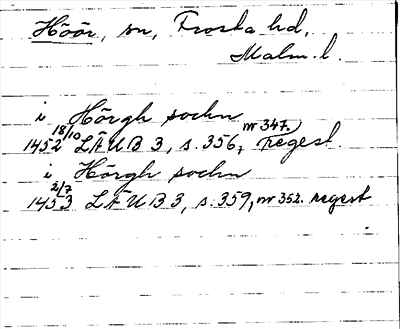 Höör, sn, Frosta hd,
Malm. l.
i Hörgh sochn
1452 18/10 LÄUB 3, s. 356, nr 347. regest
i Hörgh sochn
1453 2/7 LÄUB 3, s. 359, nr 352. regest